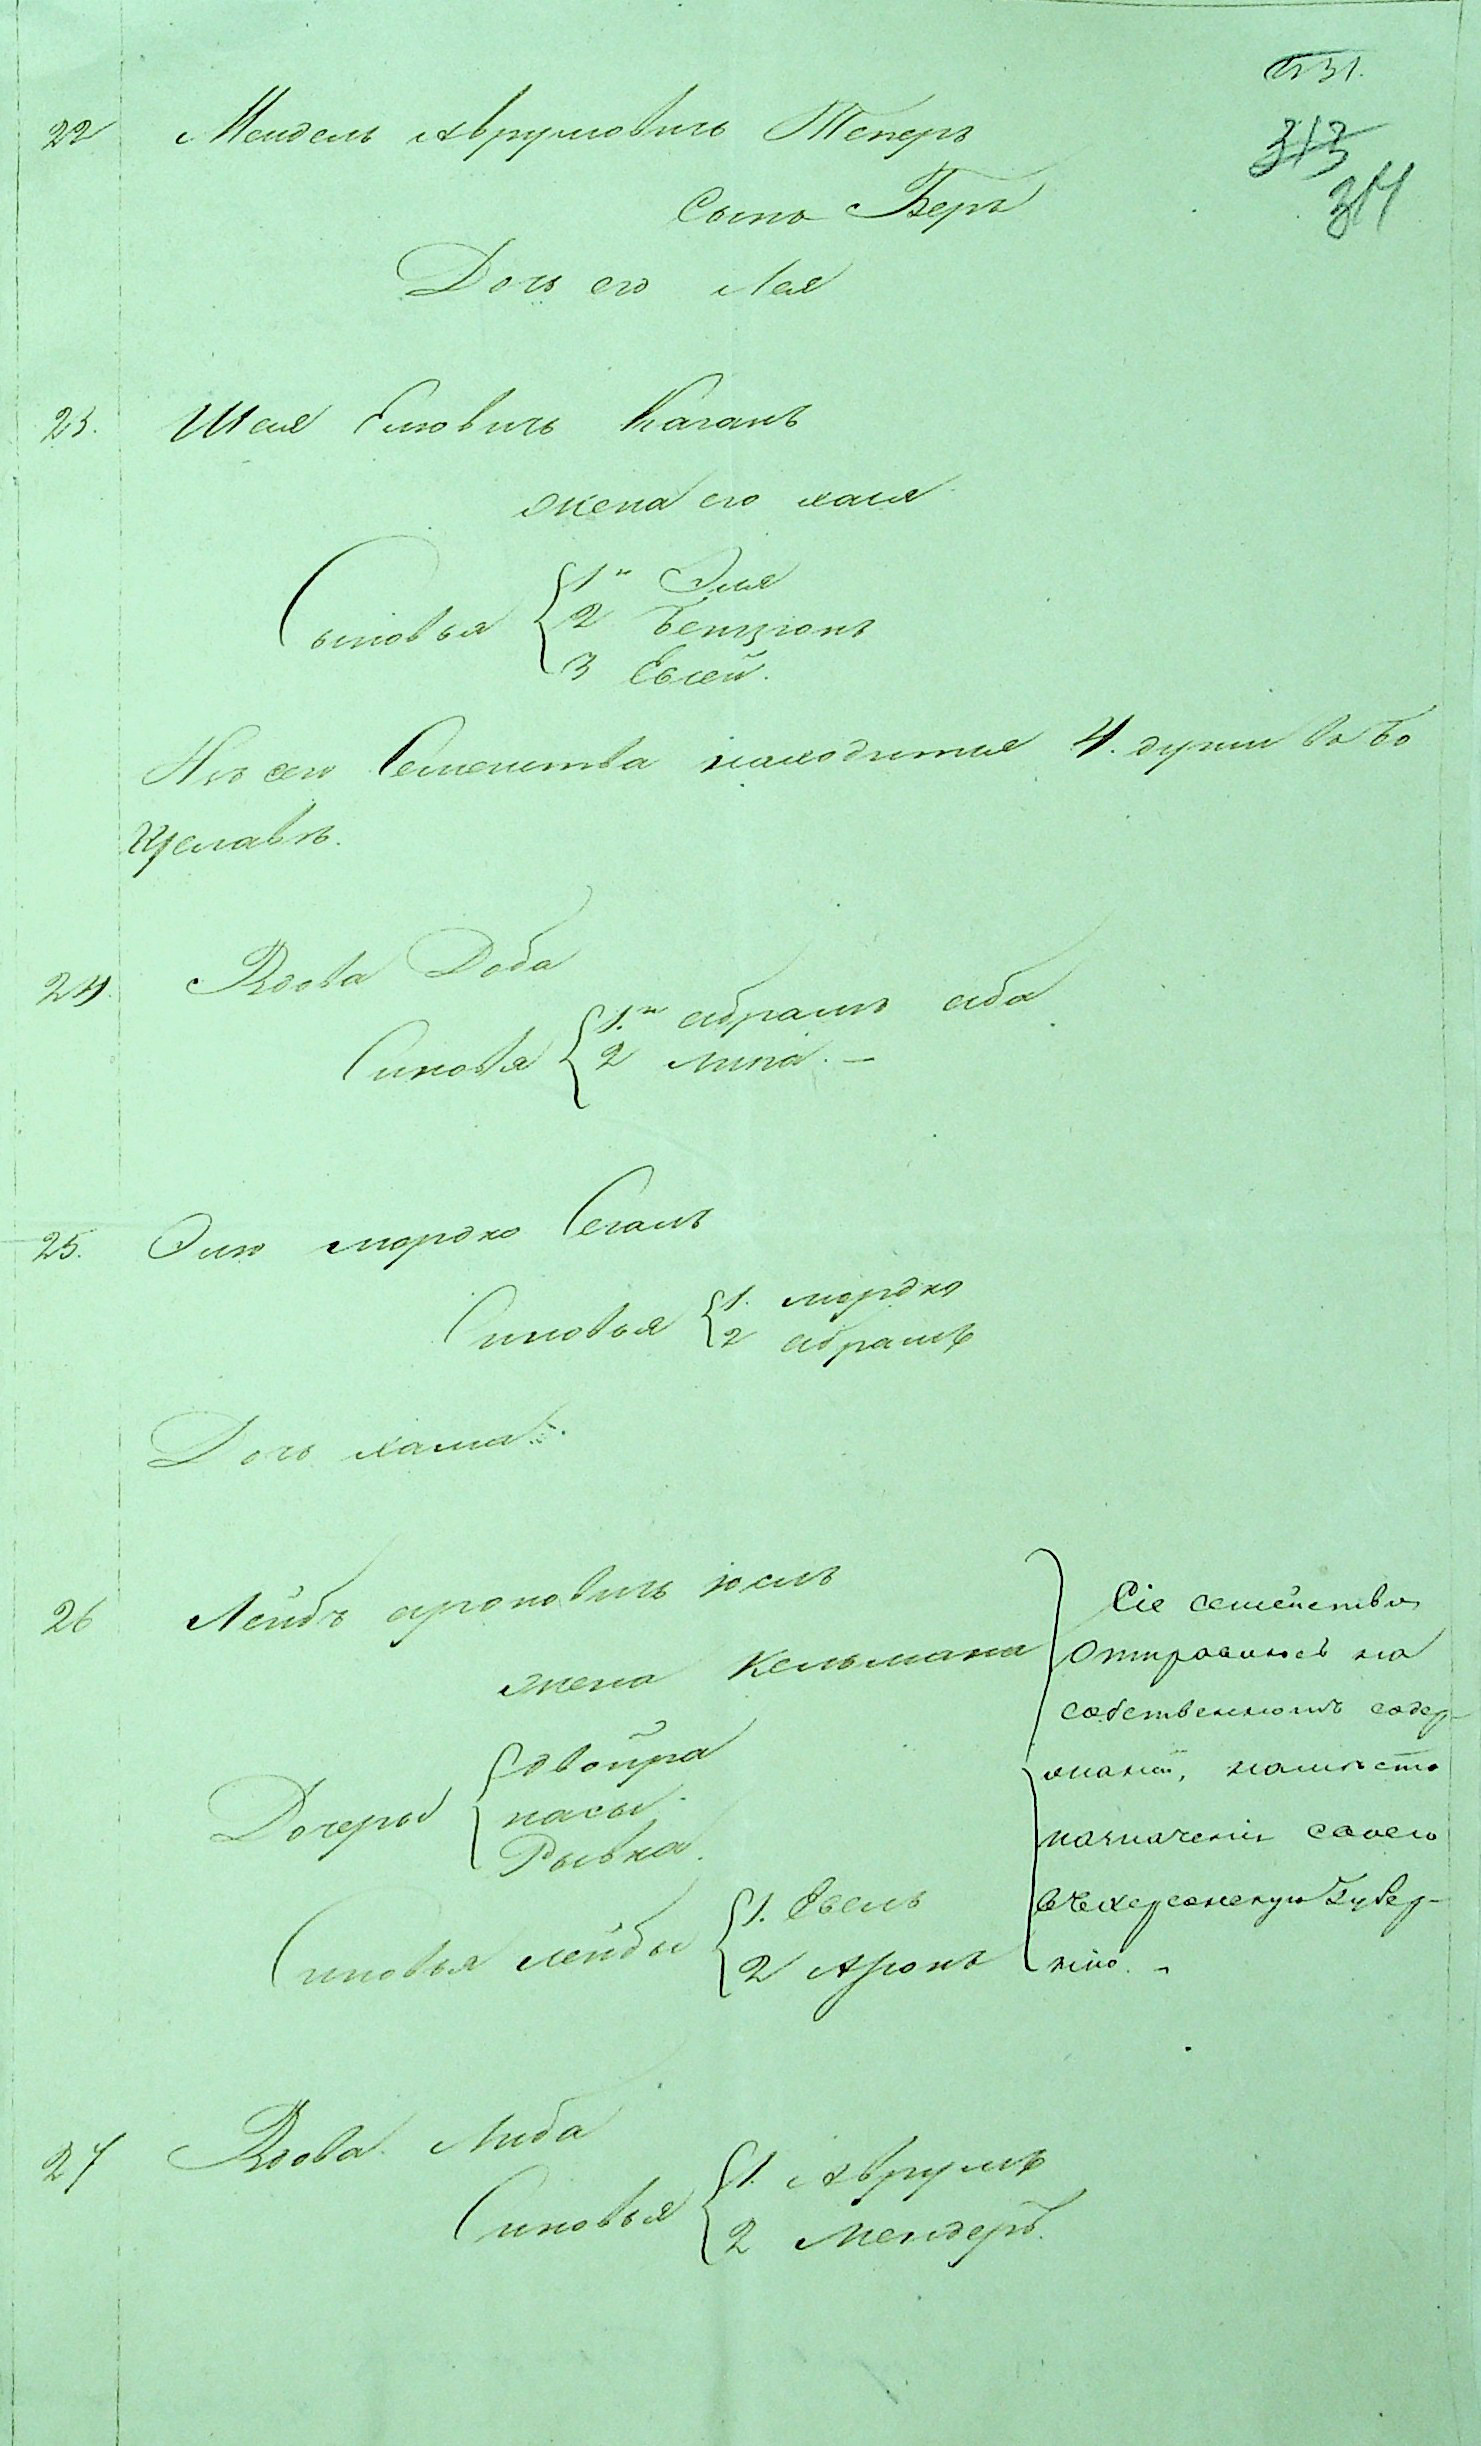 313
314
22 Мендель Аврумовичь Теперъ
Сынъ Беръ
Дочь его Лея
23. Шая Елиовичь Каганъ
жена его хася
Сыновья 1й Элия
2 Бенционъ
3 Евсей.
Изъ сего Семейства находится 4. души въ Бо
гуславѣ.
24. Вдова Доба
Синовя 1.й абрамъ аба
2 липа. —
25. Элио мордко Сегалъ
Синовья 1. мордко
2 абрамъ
Дочь хама
26 Лейбъ ароновичь
жена Кельмана
Дочеры двойра
насы
Рывка.
Синовья лейбы 1. Евель
2 Аронъ
Сіе семейство
отправилось на
собственномъ содер-
жаніи, намѣсто
назначенія своего
въ херсонскую Губер-
нію. –
27 Вдова Либа
Синовья 1. Аврумъ
2 Мендеръ.